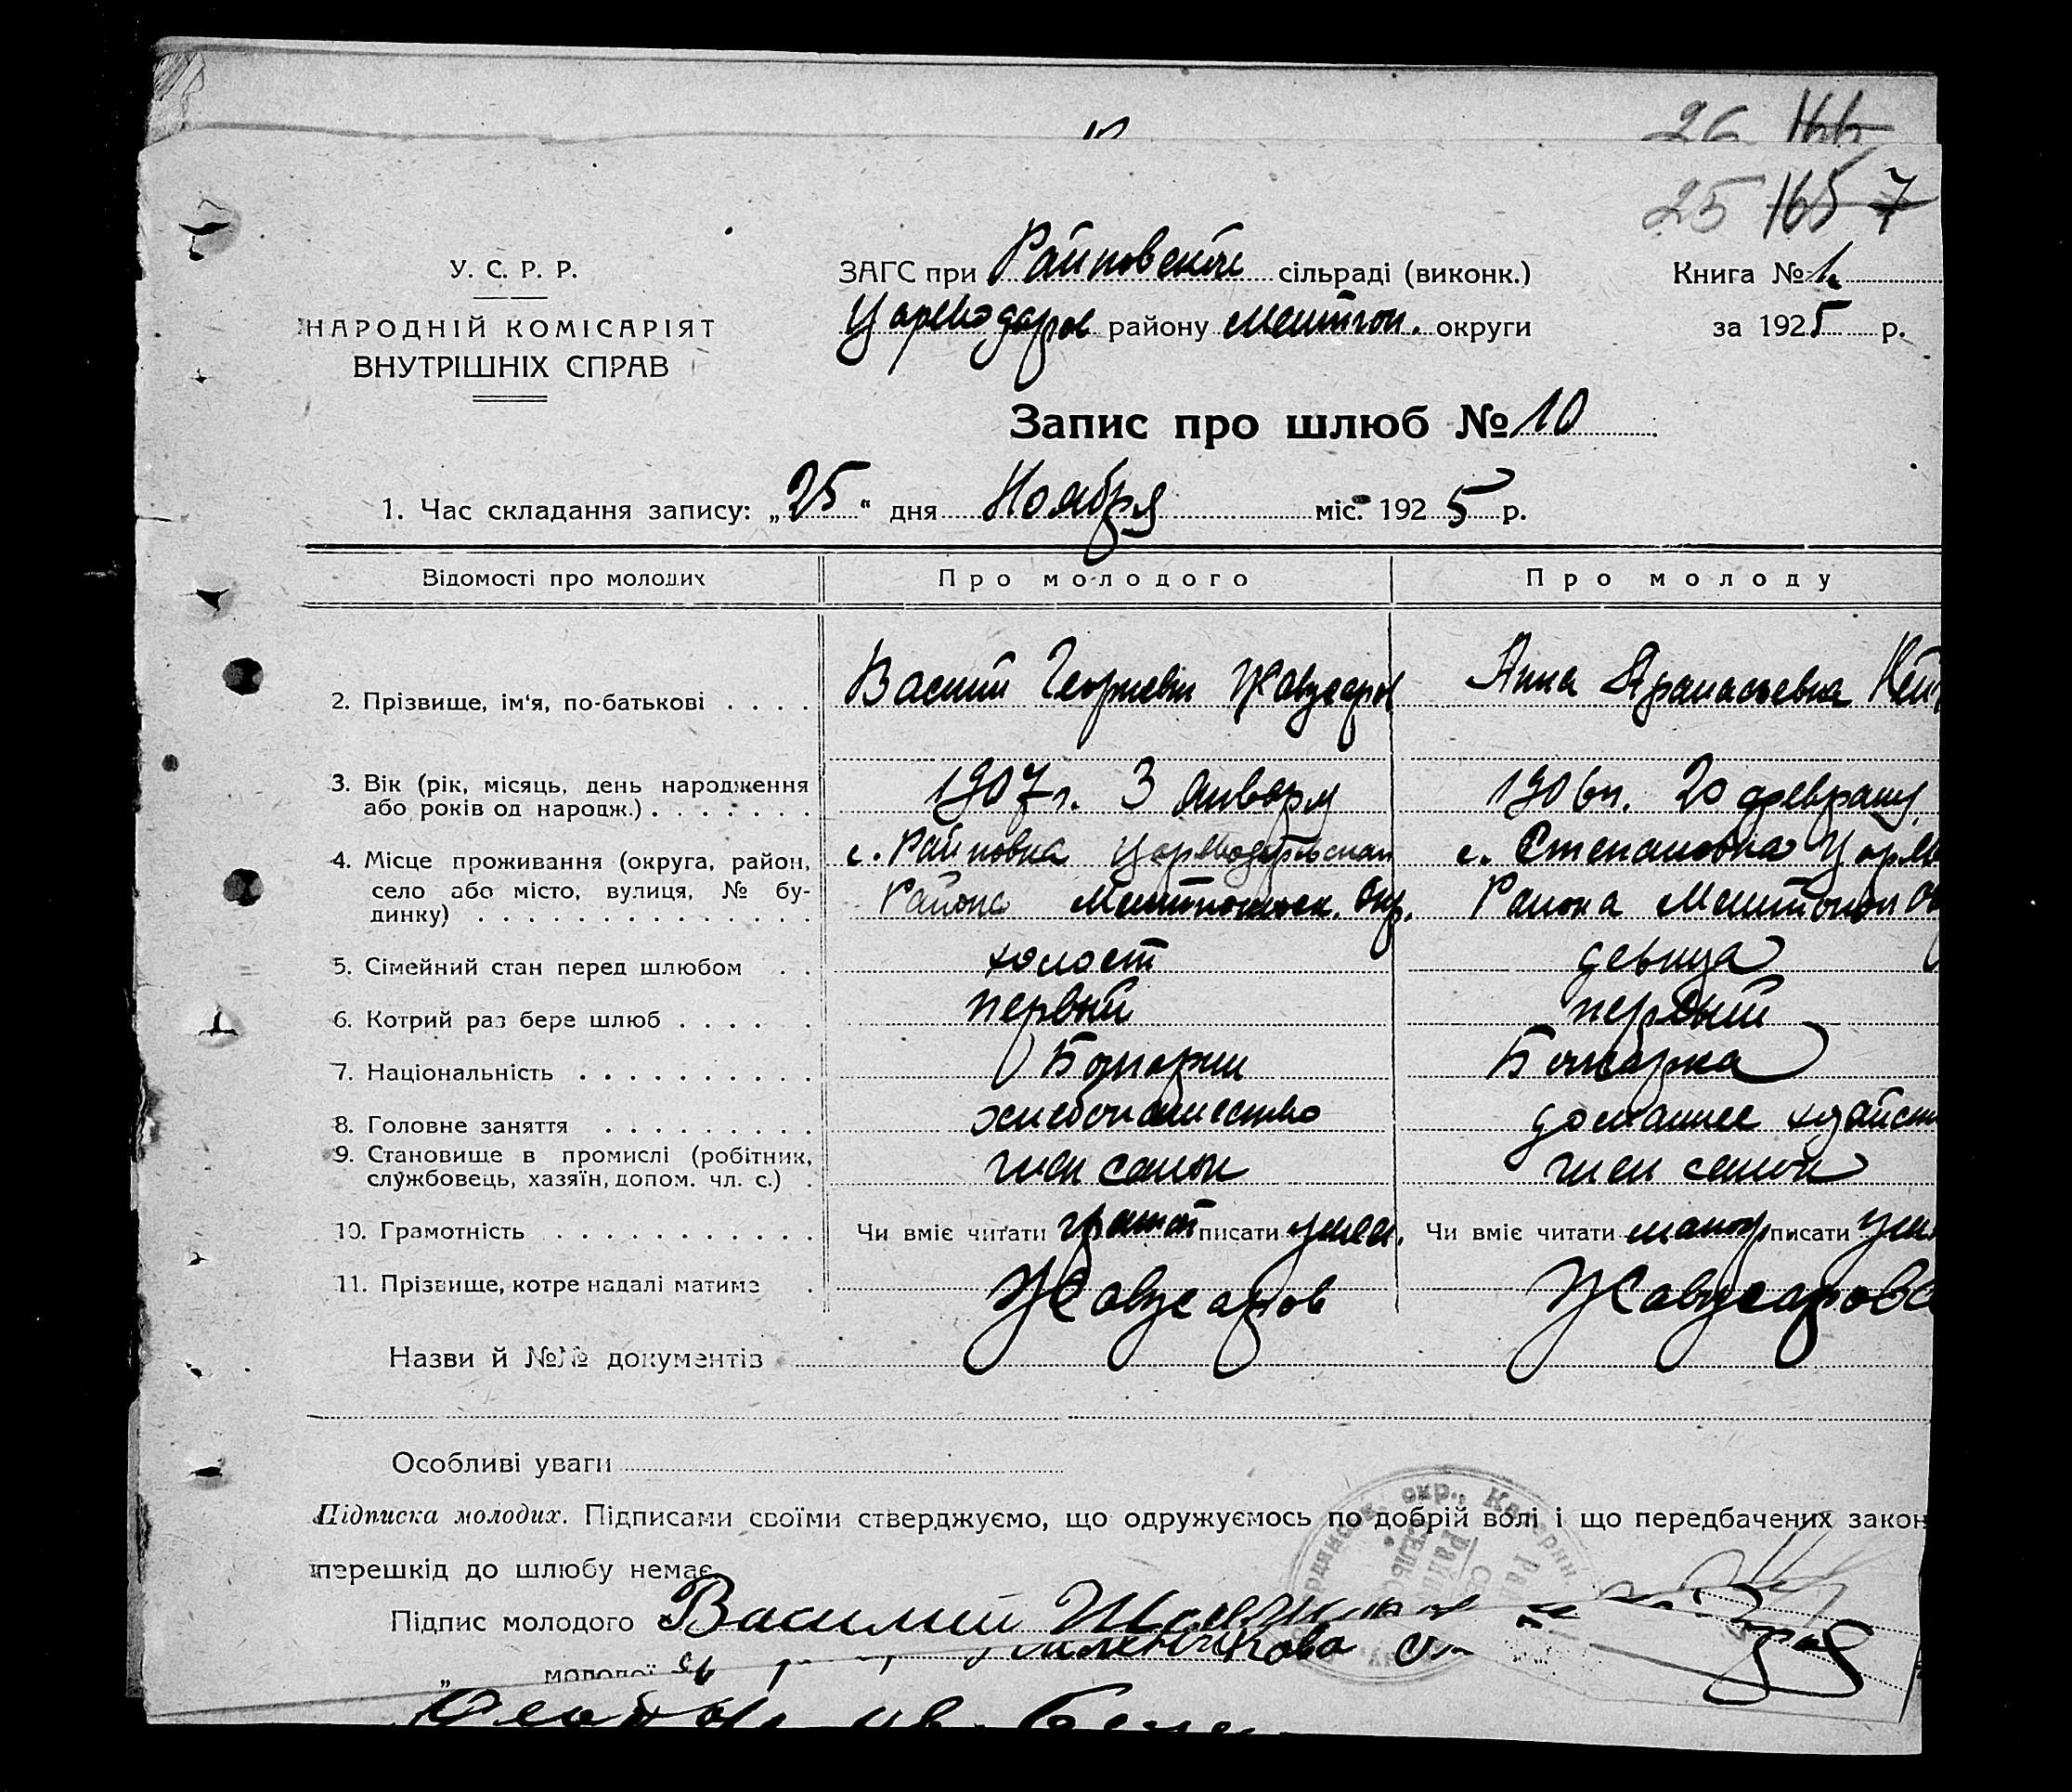 26 166
25 165 7
У. С. Р. Р.
НАРОДНІЙ КОМІСАРІЯТ
ВНУТРІШНІХ СПРАВ
ЗАГС при Райновской сільраді (виконк.)
району округи
Книга № 1
за 1925 р.
Запис про шлюб № 10
1. Час складання запису: „25" дня Ноября міс. 1925 р.
Відомості про молодих Про молодого Про молоду
2. Прізвище, ім'я, по-батькові . . . .
Василий Георгиевич Жавусаров Анна Афанасьевна
3. Вік (рік, місяць, день народження
або років од народж.) . . . . . . .
1907 г. 3 января 1906 г. 20 февраля
4. Місце проживання (округа, район,
село або місто, вулиця, № бу-
динку) . . . . . . . . . . . . . .
с. Райновка с. Степановка
Района Окр. Района
5. Сімейний стан перед шлюбом . . холост девица
6. Котрий раз бере шлюб . . . . . первый первый
7. Національність . . . . . . . . . . Болгарин Болгарка
8. Головне заняття . . . . . . . . . хлебопашество домашнее
9. Становище в промислі (робітник,
службовець, хазяїн, допом. чл. с.) . член семьи член семьи
10. Грамотність . . . . . . . . . . . . Чи вміє читати писати Чи вміє читати писати
11. Прізвище, котре надалі матиме . Жавусаров Жавусарова
Назви й №№ документів
Особливі уваги
Підписка молодих. Підписами своїми стверджуємо, що одружуємось по добрій волі і що передбачених закон
перешкід до шлюбу немає.
Підпис молодого Василий
„ молодої